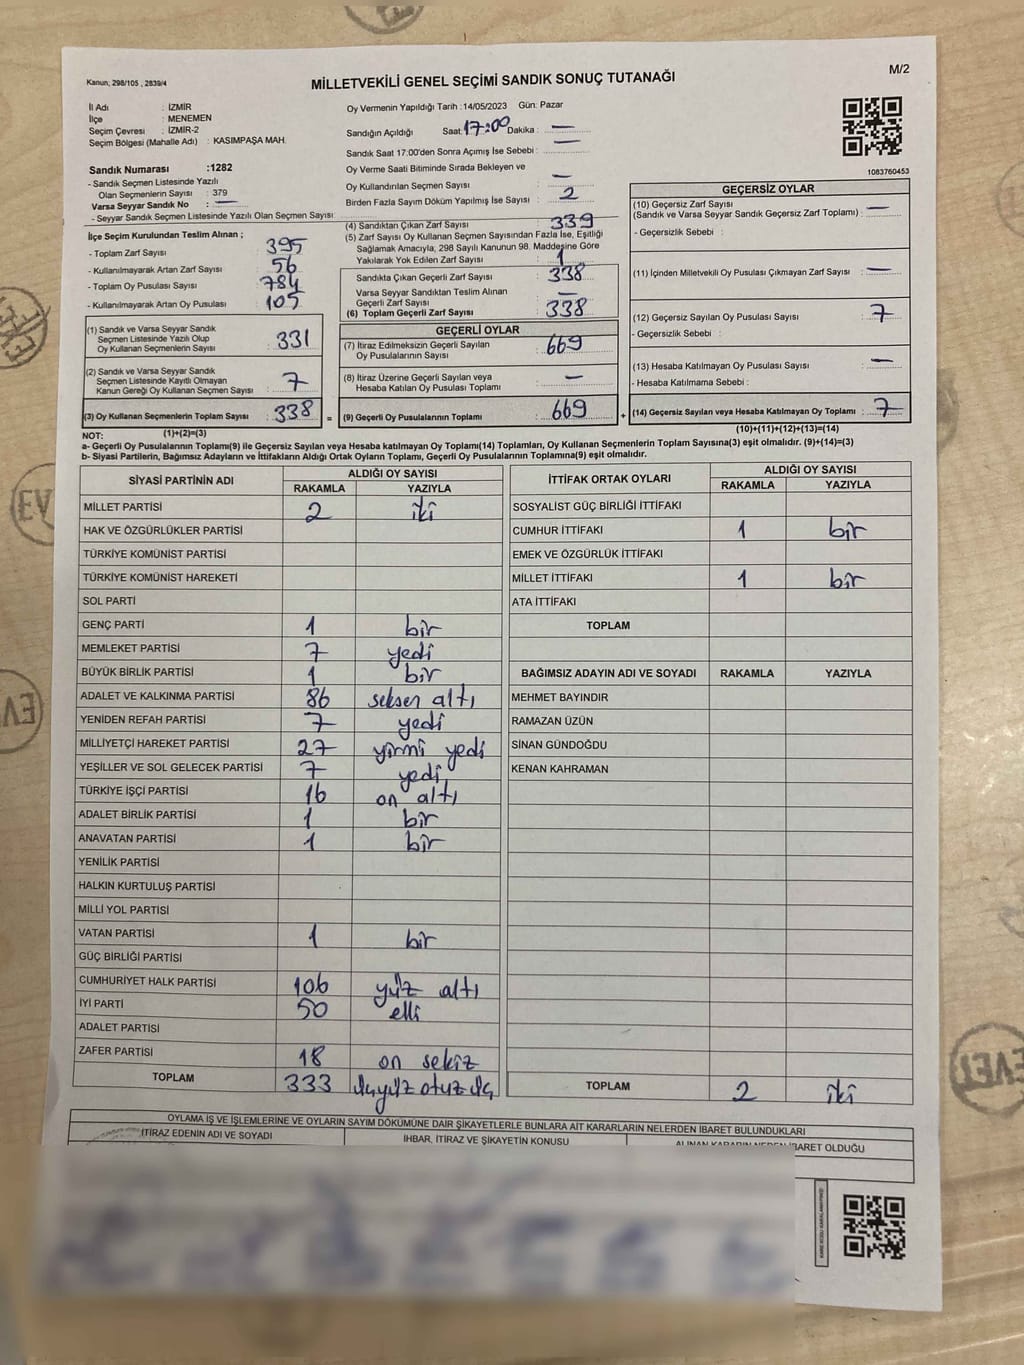 Kanun; 298/105 , 2839/4
MİLLETVEKİLİ GENEL SEÇİMİ SANDIK SONUÇ TUTANAĞI
M/2
İl Adı : İZMİR
İlçe : MENEMEN
Seçim Çevresi : İZMİR-2
Seçim Bölgesi (Mahalle Adı) : KASIMPAŞA MAH.
Oy Vermenin Yapıldığı Tarih :14/05/2023 Gün: Pazar
Sandığın Açıldığı Saat: 17:00 Dakika : —
Sandık Saat 17:00'den Sonra Açımış İse Sebebi : —
Oy Verme Saati Bitiminde Sırada Bekleyen ve
Oy Kullandırılan Seçmen Sayısı : —
Birden Fazla Sayım Döküm Yapılmış İse Sayısı : 2
1083760453
Sandık Numarası :1282
- Sandık Seçmen Listesinde Yazılı
Olan Seçmenlerin Sayısı : 379
Varsa Seyyar Sandık No : —
- Seyyar Sandık Seçmen Listesinde Yazılı Olan Seçmen Sayısı:
İlçe Seçim Kurulundan Teslim Alınan ;
- Toplam Zarf Sayısı : 395
- Kullanılmayarak Artan Zarf Sayısı : 56
- Toplam Oy Pusulası Sayısı : 784
- Kullanılmayarak Artan Oy Pusulası : 105
(1) Sandık ve Varsa Seyyar Sandık
Seçmen Listesinde Yazılı Olup
Oy Kullanan Seçmenlerin Sayısı : 331
(2) Sandık ve Varsa Seyyar Sandık
Seçmen Listesinde Kayıtlı Olmayan
Kanun Gereği Oy Kullanan Seçmen Sayısı : 7
(3) Oy Kullanan Seçmenlerin Toplam Sayısı : 338 =
(1)+(2)=(3)
(4) Sandıktan Çıkan Zarf Sayısı : 339
(5) Zarf Sayısı Oy Kullanan Seçmen Sayısından Fazla İse, Eşitliği
Sağlamak Amacıyla, 298 Sayılı Kanunun 98. Maddesine Göre
Yakılarak Yok Edilen Zarf Sayısı : 1
Sandıkta Çıkan Geçerli Zarf Sayısı : 338
Varsa Seyyar Sandıktan Teslim Alınan
Geçerli Zarf Sayısı : —
(6) Toplam Geçerli Zarf Sayısı : 338
GEÇERLİ OYLAR
(7) İtiraz Edilmeksizin Geçerli Sayılan
Oy Pusulalarının Sayısı : 669
(8) İtiraz Üzerine Geçerli Sayılan veya
Hesaba Katılan Oy Pusulası Toplamı : —
(9) Geçerli Oy Pusulalarının Toplamı : 669 +
GEÇERSİZ OYLAR
(10) Geçersiz Zarf Sayısı
(Sandık ve Varsa Seyyar Sandık Geçersiz Zarf Toplamı) : —
- Geçersizlik Sebebi :
(11) İçinden Milletvekili Oy Pusulası Çıkmayan Zarf Sayısı : —
(12) Geçersiz Sayılan Oy Pusulası Sayısı : 7
- Geçersizlik Sebebi :
(13) Hesaba Katılmayan Oy Pusulası Sayısı : —
- Hesaba Katılmama Sebebi :
(14) Geçersiz Sayılan veya Hesaba Katılmayan Oy Toplamı : 7
(10)+(11)+(12)+(13)=(14)
NOT:
a- Geçerli Oy Pusulalarının Toplamı(9) ile Geçersiz Sayılan veya Hesaba katılmayan Oy Toplamı(14) Toplamları, Oy Kullanan Seçmenlerin Toplam Sayısına(3) eşit olmalıdır. (9)+(14)=(3)
b- Siyasi Partilerin, Bağımsız Adayların ve İttifakların Aldığı Oyların Toplamı, Geçerli Oy Pusulalarının Toplamına(9) eşit olmalıdır.
SİYASİ PARTİNİN ADI ALDIĞI OY SAYISI
RAKAMLA YAZIYLA
MİLLET PARTİSİ 2 iki
HAK VE ÖZGÜRLÜKLER PARTİSİ
TÜRKİYE KOMÜNİST PARTİSİ
TÜRKİYE KOMÜNİST HAREKETİ
SOL PARTİ
GENÇ PARTİ 1 bir
MEMLEKET PARTİSİ 7 yedi
BÜYÜK BİRLİK PARTİSİ 1 bir
ADALET VE KALKINMA PARTİSİ 86 seksen altı
YENİDEN REFAH PARTİSİ 7 yedi
MİLLİYETÇİ HAREKET PARTİSİ 27 yirmi yedi
YEŞİLLER VE SOL GELECEK PARTİSİ 7 yedi
TÜRKİYE İŞÇİ PARTİSİ 16 on altı
ADALET BİRLİK PARTİSİ 1 bir
ANAVATAN PARTİSİ 1 bir
YENİLİK PARTİSİ
HALKIN KURTULUŞ PARTİSİ
MİLLİ YOL PARTİSİ
VATAN PARTİSİ 1 bir
GÜÇ BİRLİĞİ PARTİSİ
CUMHURİYET HALK PARTİSİ 106 yüz altı
İYİ PARTİ 50 elli
ADALET PARTİSİ
ZAFER PARTİSİ 18 on sekiz
TOPLAM 333 üçyüz otuz üç
İTTİFAK ORTAK OYLARI ALDIĞI OY SAYISI
RAKAMLA YAZIYLA
SOSYALİST GÜÇ BİRLİĞİ İTTİFAKI
CUMHUR İTTİFAKI 1 bir
EMEK VE ÖZGÜRLÜK İTTİFAKI
MİLLET İTTİFAKI 1 bir
ATA İTTİFAKI
TOPLAM
BAĞIMSIZ ADAYIN ADI VE SOYADI RAKAMLA YAZIYLA
MEHMET BAYINDIR
RAMAZAN ÜZÜN
SİNAN GÜNDOĞDU
KENAN KAHRAMAN
TOPLAM 2 iki
OYLAMA İŞ VE İŞLEMLERİNE VE OYLARIN SAYIM DÖKÜMÜNE DAİR ŞİKAYETLERLE BUNLARA AİT KARARLARIN NELERDEN İBARET BULUNDUKLARI
İTİRAZ EDENİN ADI VE SOYADI İHBAR, İTİRAZ VE ŞİKAYETİN KONUSU ALINAN KARARIN NEDEN İBARET OLDUĞU
EVET
EVET
EVET